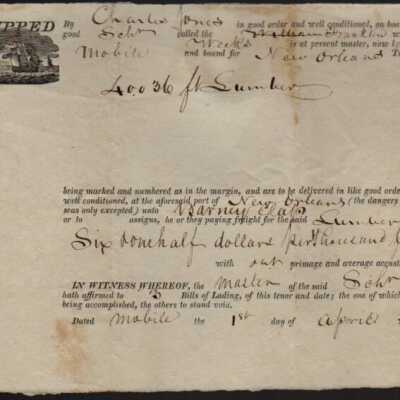 SHIPPED By Charles Jones in good order and well conditioned, on boa
good Schr called the William Franklin w
Weeks is at present master, now ly
Mobile and bound for New Orleans T
40036 ft Lumber
being marked and numbered as in the margin, and are to be delivered in like good orde
well conditioned, at the aforesaid port of New Orleans (the dangers
seas only excepted) unto Barney Clap
or to assigns, he or they paying freight for the said Lumber
Six & onehalf dollars per thousand
with out primage and average accust
IN WITNESS WHEREOF, the Master of the said Schr
hath affirmed to 3 Bills of Lading, of this tenor and date; the one of which
being accomplished, the others to stand void.
Dated Mobile the 1st day of April